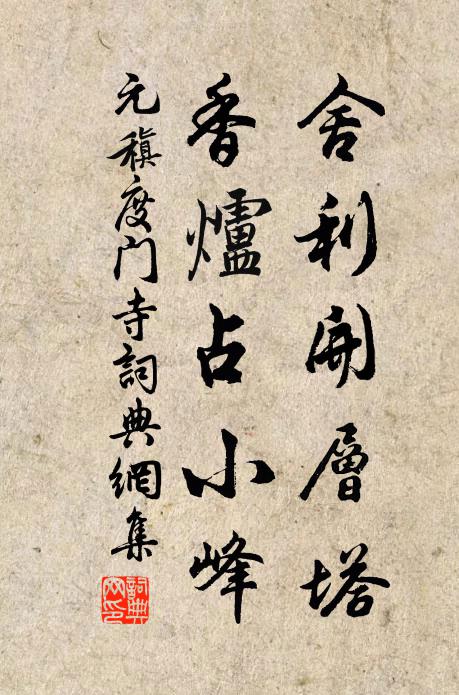 舍利開層塔
香爐占小峰
元稹度门寺詞典網集
詞典网印